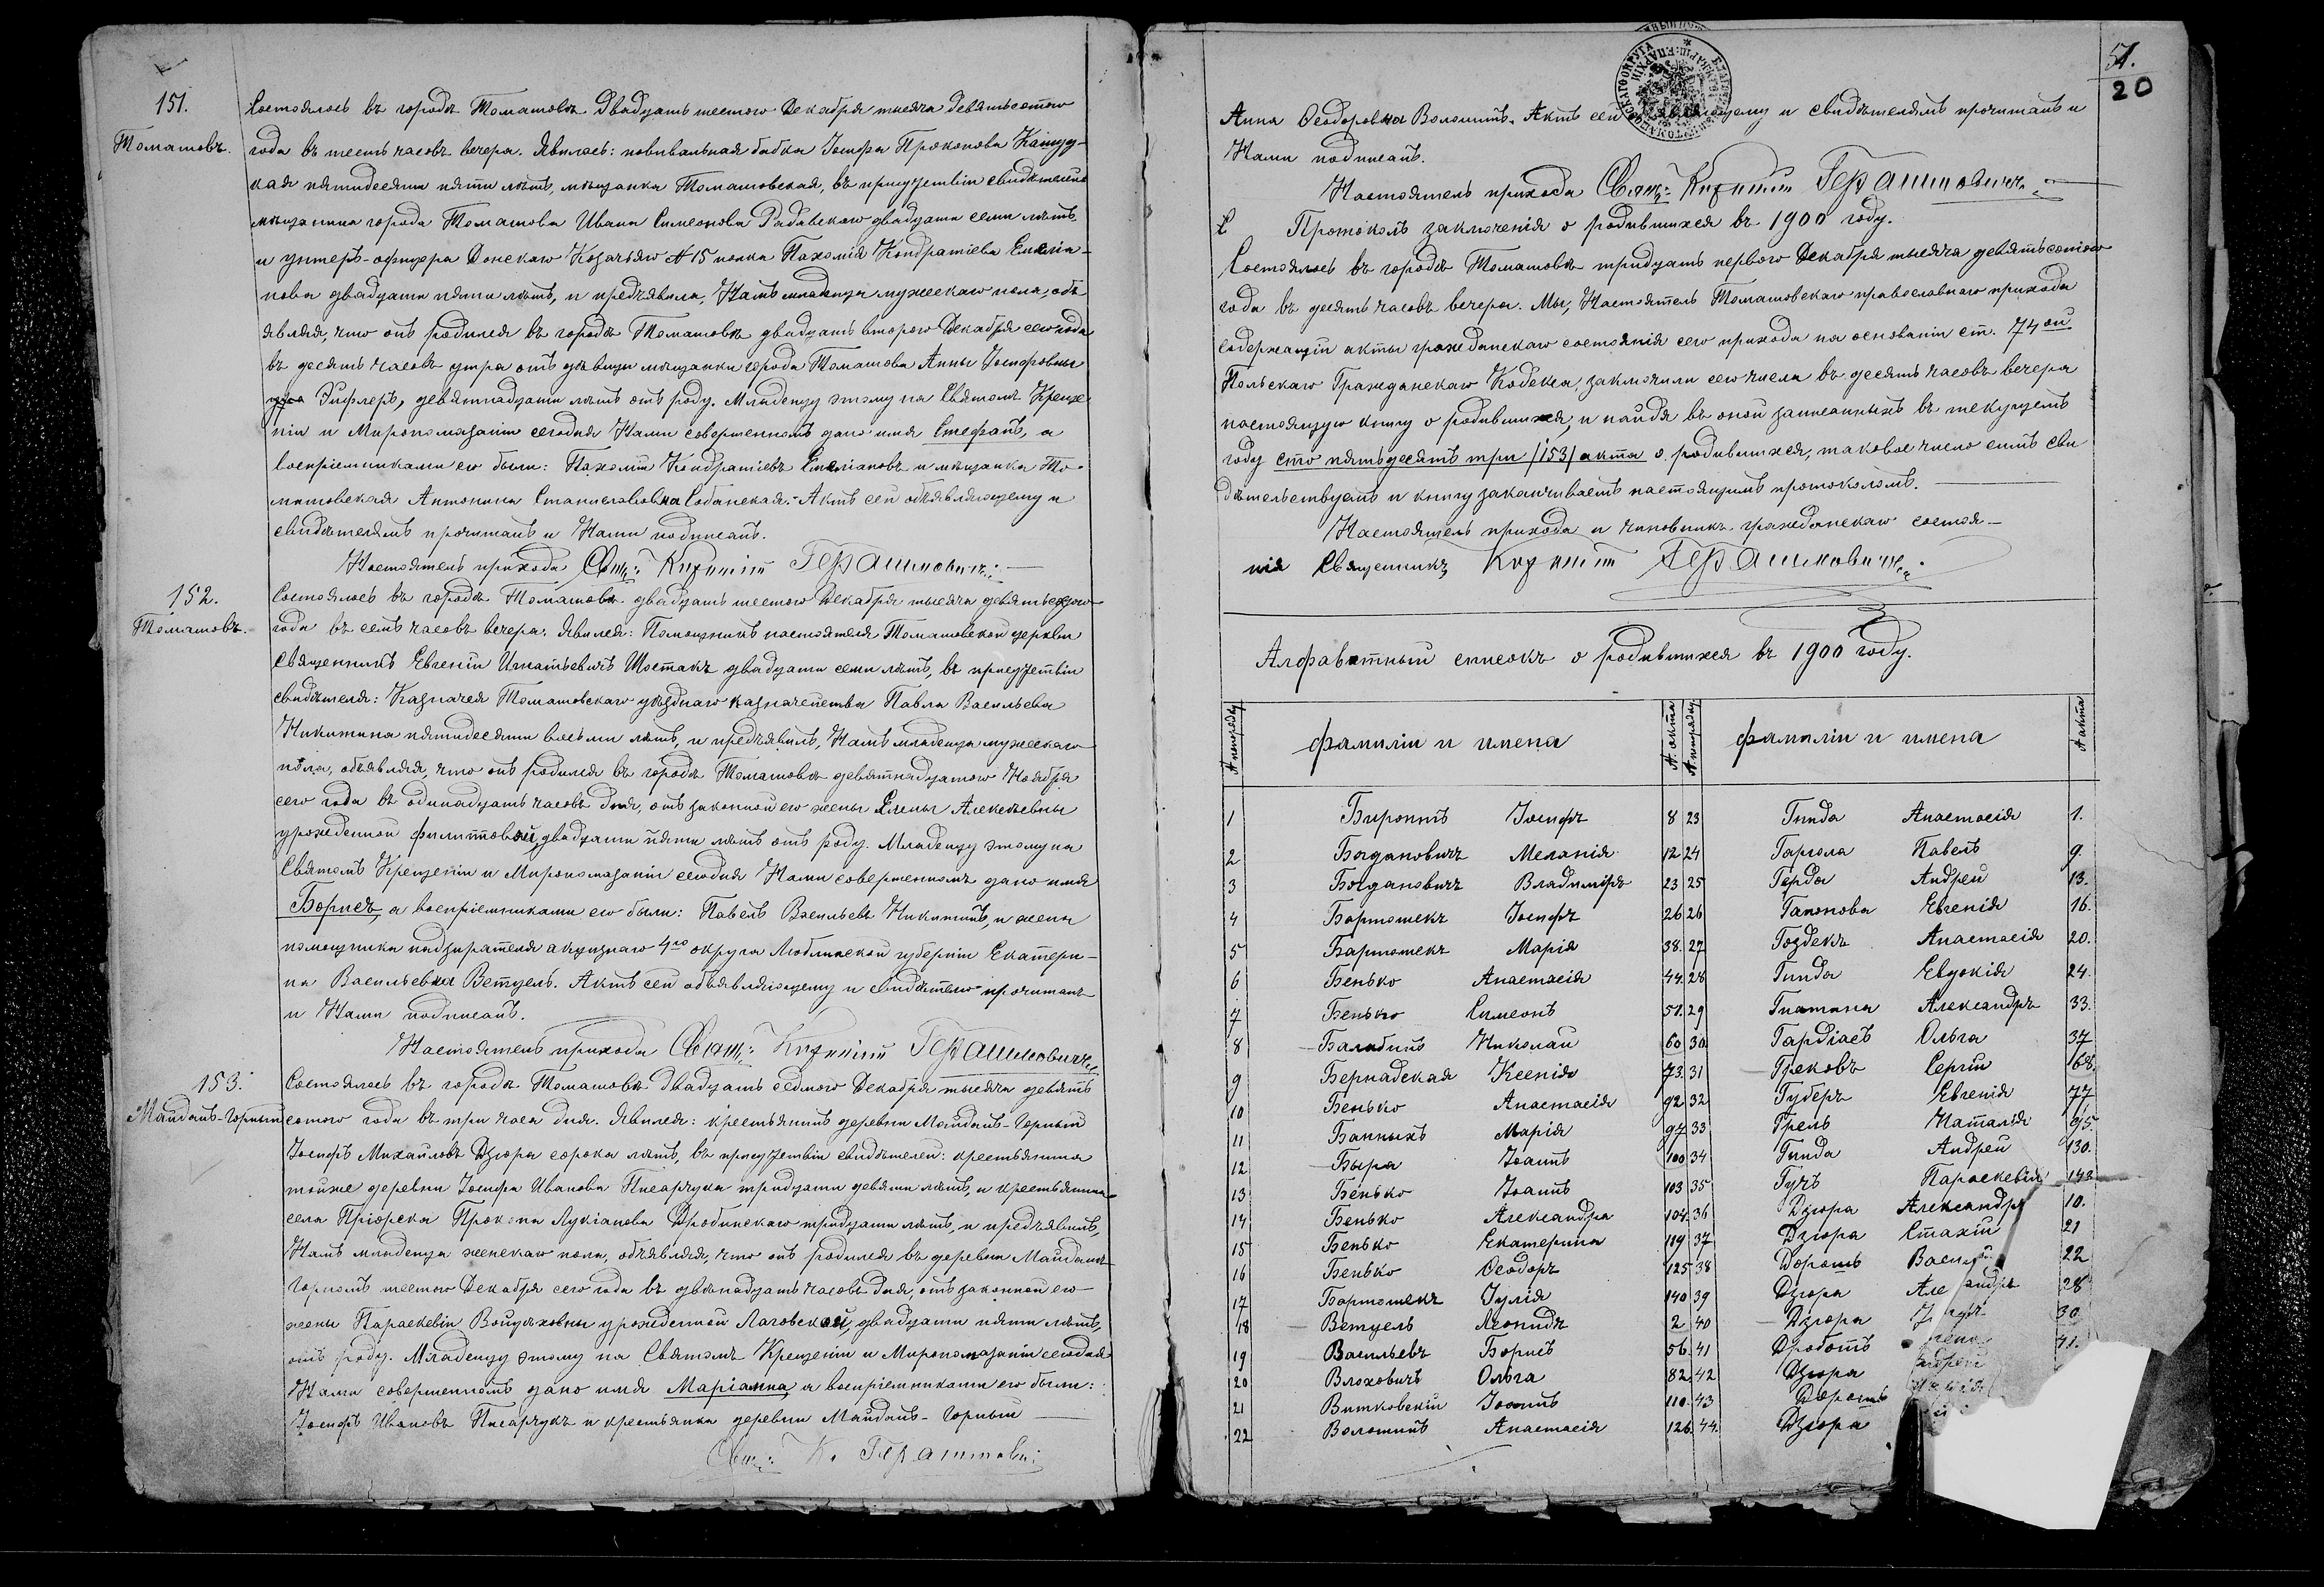 151.
Томашовъ.
Состоялось въ городѣ Томашовѣ двадцать шестого Декабря тысяча девятьсотого
года въ шесть часовъ вечера. Явилась: повивальная бабка Іосифа Прокопова
кая пятидесяти пяти лѣтъ, мѣщанка Томашовская, въ присутствіи свидѣтелей
мѣщанина города Томашова Ивана Симеонова Радавскаго двадцати семи лѣтъ
и унтеръ-офицера Донскаго Козачьяго № 15 полка Пахомія Кондратіева Емелiа-
нова двадцати пяти лѣтъ, и предъявила, Намъ младенца мужескаго пола, объ
являя, что онъ родился въ городѣ Томашовѣ двадцать второго Декабря сего года
въ десять часовъ утра отъ дѣвицы мѣщанки города Томашова Анны Іосифовны
Зифлеръ, девятнадцати лѣтъ отъ роду. Младенцу этому на Святомъ Креще
ніи и Миропомазаніи сегодня Нами совершенномъ дано имя Стефанъ, а
воспріемниками его были: Пахомій Кондратіевъ Емеліановъ и мѣщанка То-
машовская Антонина Станиславовна Собанская. Актъ сей объявляющему и
свидѣтелямъ прочитанъ и Нами подписанъ.
Настоятель прихода Свящ: Герашимовичъ
152.
Томашовъ.
Состоялось въ городѣ Томашовѣ двадцать шестого Декабря тысяча девятьсотого
года въ семь часовъ вечера. Явился: Помощникъ настоятеля Томашовской церкви
Священникъ Евгеній Игнатьевичъ Шостакъ двадцати семи лѣтъ, въ присутствіи
свидѣтеля: Казначея Томашовскаго уѣзднаго казначейства Павла Васильева
Никитина пятидесяти восьми лѣтъ, и предъявилъ, Намъ младенца мужескаго
пола, объявляя, что онъ родился въ городѣ Томашовѣ девятнадцатого Ноября
сего года въ одинадцать часовъ дня, отъ законной его жены Елены Алексѣевны
урожденной Филитовой, двадцати пяти лѣтъ отъ роду. Младенцу этому на
Святомъ Крещеніи и Миропомазаніи сегодня Нами совершенномъ дано имя
Борисъ, а воспріемниками его были: Павелъ Васильевъ Никитинъ, и жена
помощника надзирателя акцизнаго 4го округа Люблинской губерніи Екатери-
на Васильевна Ветцель. Актъ сей объявляющему и свидѣтелю прочитанъ
и Нами подписанъ.
Настоятель прихода Свящ: Герашимовичъ
153.
Майданъ-Горный
Состоялось въ городѣ Томашовѣ двадцать седмого Декабря тысяча девять
сотого года въ три часа дня. Явился: крестьянинъ деревни Майданъ-Горный
Іосифъ Михайловъ Дзюра сорока лѣтъ, въ присутствіи свидѣтелей: крестьянина
тойже деревни Іосифа Иванова Писарчука тридцати девяти лѣтъ, и крестьянина
села Пріорска Прокопа Лукіанова Дробинскаго тридцати лѣтъ, и предъявилъ,
Намъ младенца женскаго пола, объявляя, что онъ родился въ деревни Майданѣ-
Горномъ шестого Декабря сего года въ двѣнадцать часовъ дня, отъ законной его
жены Параскевіи Войцѣховны урожденной Лаговской, двадцати пяти лѣтъ,
отъ роду. Младенцу этому на Святомъ Крещеніи и Миропомазаніи сегодня
Нами совершенномъ дано имя Маріанна, а воспріемниками его были:
Іосифъ Ивановъ Писарчукъ и крестьянка деревни Майданъ-Горный
Свящ: К. Герашимович:
51.
20
Анна Ѳеодоровна Волошинъ. Актъ сей объявляющему и свидѣтелямъ прочитанъ и
Нами подписанъ.
Настоятель прихода Свящ: Герашимовичъ
Протоколъ заключенія о родившихся въ 1900 году.
Состоялось въ городѣ Томашовѣ тридцать перваго Декабря тысяча девятьсотого
года въ десять часовъ вечера. Мы, Настоятель Томашовскаго православнаго прихода
содержащій акты гражданскаго состоянія сего прихода на основаніи ст. 74ой
Польскаго Гражданскаго Кодекса, заключили сего числа въ десять часовъ вечера
настоящую книгу о родившихся, и найдя въ оной записанныхъ въ текущемъ
году сто пятьдесятъ три /153/ акта о родившихся, таковое число симъ сви
дѣтельствуемъ и книгу заканчиваемъ настоящимъ протоколомъ.
Настоятель прихода и чиновникъ гражданскаго состоя-
нія Священникъ Герашимовичъ
Алфавитный списокъ о родившихся въ 1900 году.
№ порядку Фамиліи и имена № акта № порядку Фамиліи и имена № акта
1 Биронтъ Іосифъ 8 23 Гинда Анастасія 1.
2 Богдановичъ Меланія 12 24 Гаргола Павелъ 9.
3 Богдановичъ Владиміръ 23 25 Герда Андрей 13.
4 Бартошекъ Іосифъ 26 26 Гапонова Евгенія 16.
5 Бартошекъ Марія 38. 27 Гоздекъ Анастасія 20.
6 Бенько Анастасія 44. 28 Гинда Евдокія 24.
7 Бенько Симеонъ 51. 29 Гнатына Александръ 33.
8 Балабинъ Николай 60 30 Гардіасъ Ольга 37
9 Бернадская Ксенія 73. 31 Грековъ Сергій 68.
10 Бенько Анастасія 92 32 Губеръ Евгенія 77
11 Банныхъ Марія 97 33 Грель Наталія 95.
12 Быра Іоаннъ 100 34 Гинда Андрей 130.
13 Бенько Іоаннъ 103 35 Гучъ Параскевія 143
14 Бенько Александра 104. 36 Дзюра Александръ 10.
15 Бенько Екатерина 119 37 Дзюра Стахій 21
16 Бенько Ѳеодоръ 125 38 Дорошъ 22
17 Бартошекъ Іулія 140 39 Дзюра 28
18 Ветцель Леонидъ 2 40 Дзюра 30
19 Васильевъ Борисъ 56. 41 Дроботъ 41.
20 Влоховичъ Ольга 82 42 Дзюра
21 Витковскій Іоаннъ 110. 43 Дорошъ
22 Волошинъ Анастасія 126. 44. Дзюра